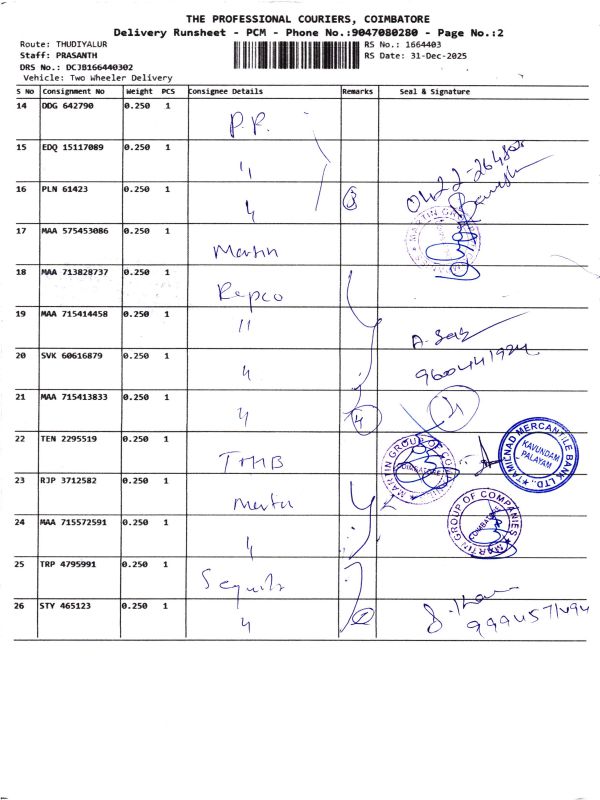 THE PROFESSIONAL COURIERS, COIMBATORE
Delivery Runsheet - PCM - Phone No.:9047080280 - Page No.:2
Route: THUDIYALUR RS No.: 1664403
Staff: PRASANTH RS Date: 31-Dec-2025
DRS No.: DCJB166440302
Vehicle: Two Wheeler Delivery
S No Consignment No Weight PCS Consignee Details Remarks Seal & Signature
14 DDG 642790 0.250 1 P.P.
15 EDQ 15117089 0.250 1 "
16 PLN 61423 0.250 1 " 3
17 MAA 575453086 0.250 1 Martin
18 MAA 713828737 0.250 1 Repco
19 MAA 715414458 0.250 1 "
20 SVK 60616879 0.250 1 "
21 MAA 715413833 0.250 1 " 4
22 TEN 2295519 0.250 1 TMB TAMILNAD MERCANTILE BANK LTD.
KAVUNDAM
PALAYAM
23 RJP 3712582 0.250 1 Martin
24 MAA 715572591 0.250 1 " MARTIN GROUP OF COMPANIES
COIMBATORE
25 TRP 4795991 0.250 1
26 STY 465123 0.250 1 "